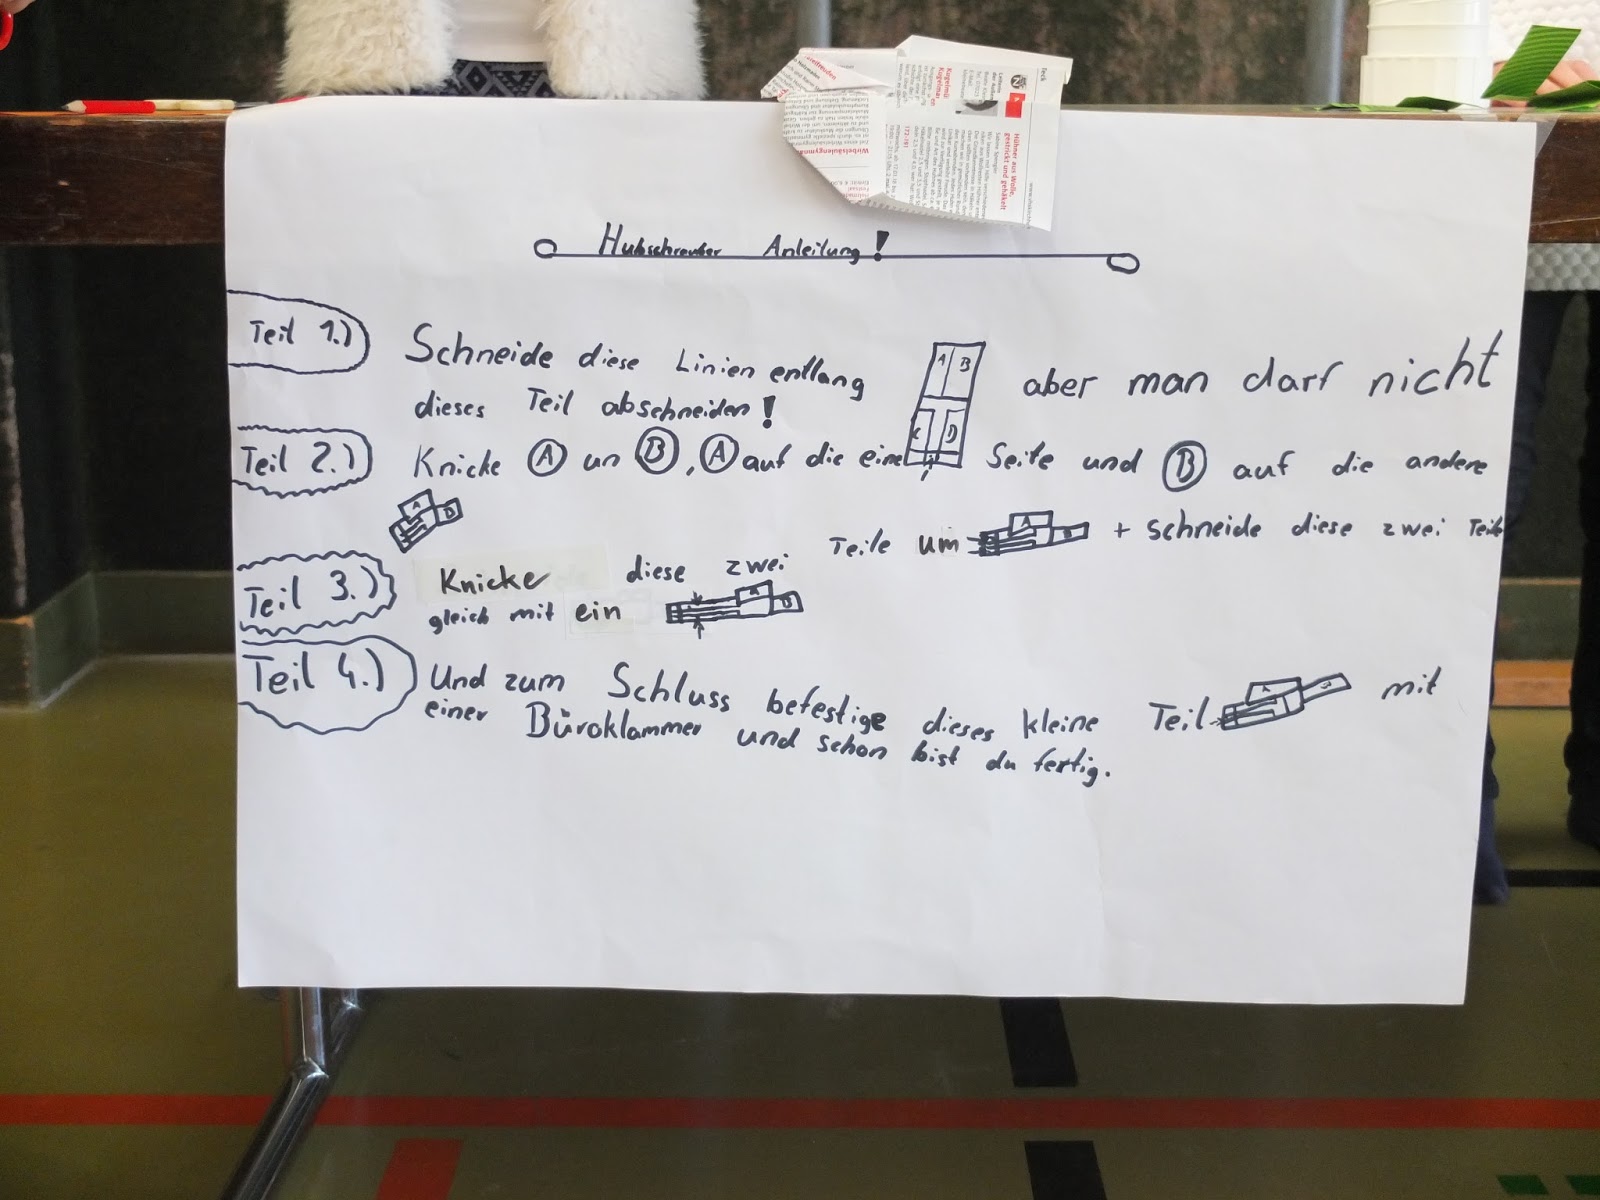 Hubschrauber Anleitung!
Teil 1.) Schneide diese Linien entlang A B C D aber man darf nicht
dieses Teil abschneiden!
Teil 2.) Knicke A un B, A auf die eine Seite und B auf die andere
A B
Teil 3.) Knicke diese zwei Teile um A B + schneide diese zwei Teile
gleich mit ein A B
Teil 4.) Und zum Schluss befestige dieses kleine Teil A B mit
einer Büroklammer und schon bist du fertig.
Hühner aus Wolle,
gestrickt und gehäkelt
Wirbelsäulengymnas